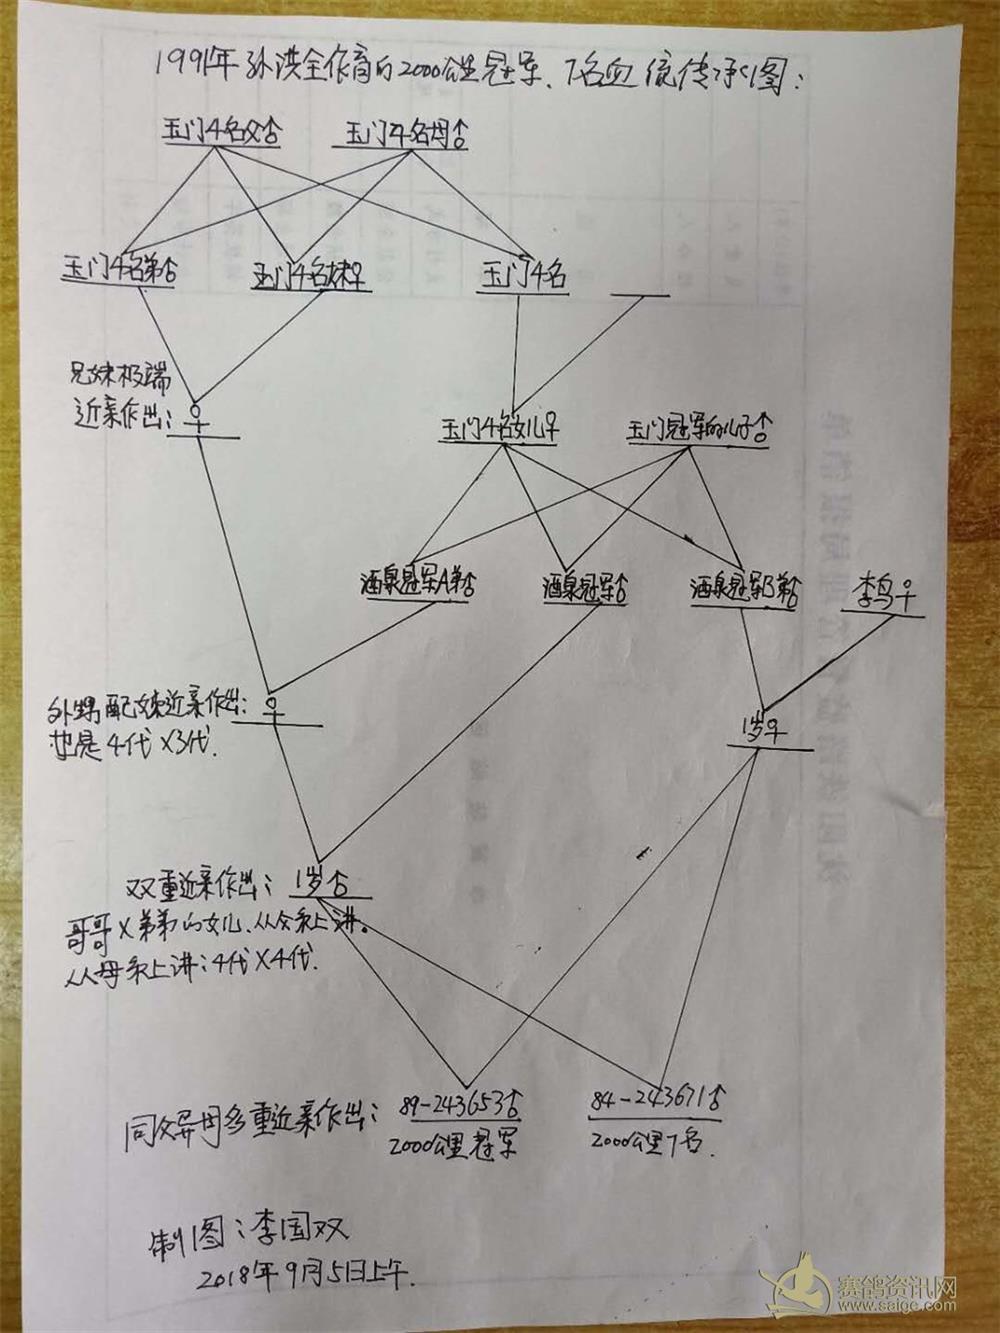 1991年孙洪全作育的2000公里冠军、7名血统传承图：
玉门4名父♂
玉门4名母♂
玉门4名弟♂
玉门4名妹♀
玉门4名
兄妹极端
近亲作出：♀
玉门4名女儿♀
玉门冠军的儿子♂
酒泉冠军A弟♂
酒泉冠军♂
酒泉冠军B弟♂
李鸟♀
外甥配妹近亲作出：♀
也是4代×3代.
1岁♀
双重近亲作出：1岁♂
哥哥×弟弟的女儿、从父系上讲。
从母系上讲：4代×4代.
同父异母多重近亲作出：
89-243653♂
2000公里冠军
84-243671♂
2000公里7名.
制图：李国双
2018年9月5日上午.
赛鸽资讯网
www.saige.com